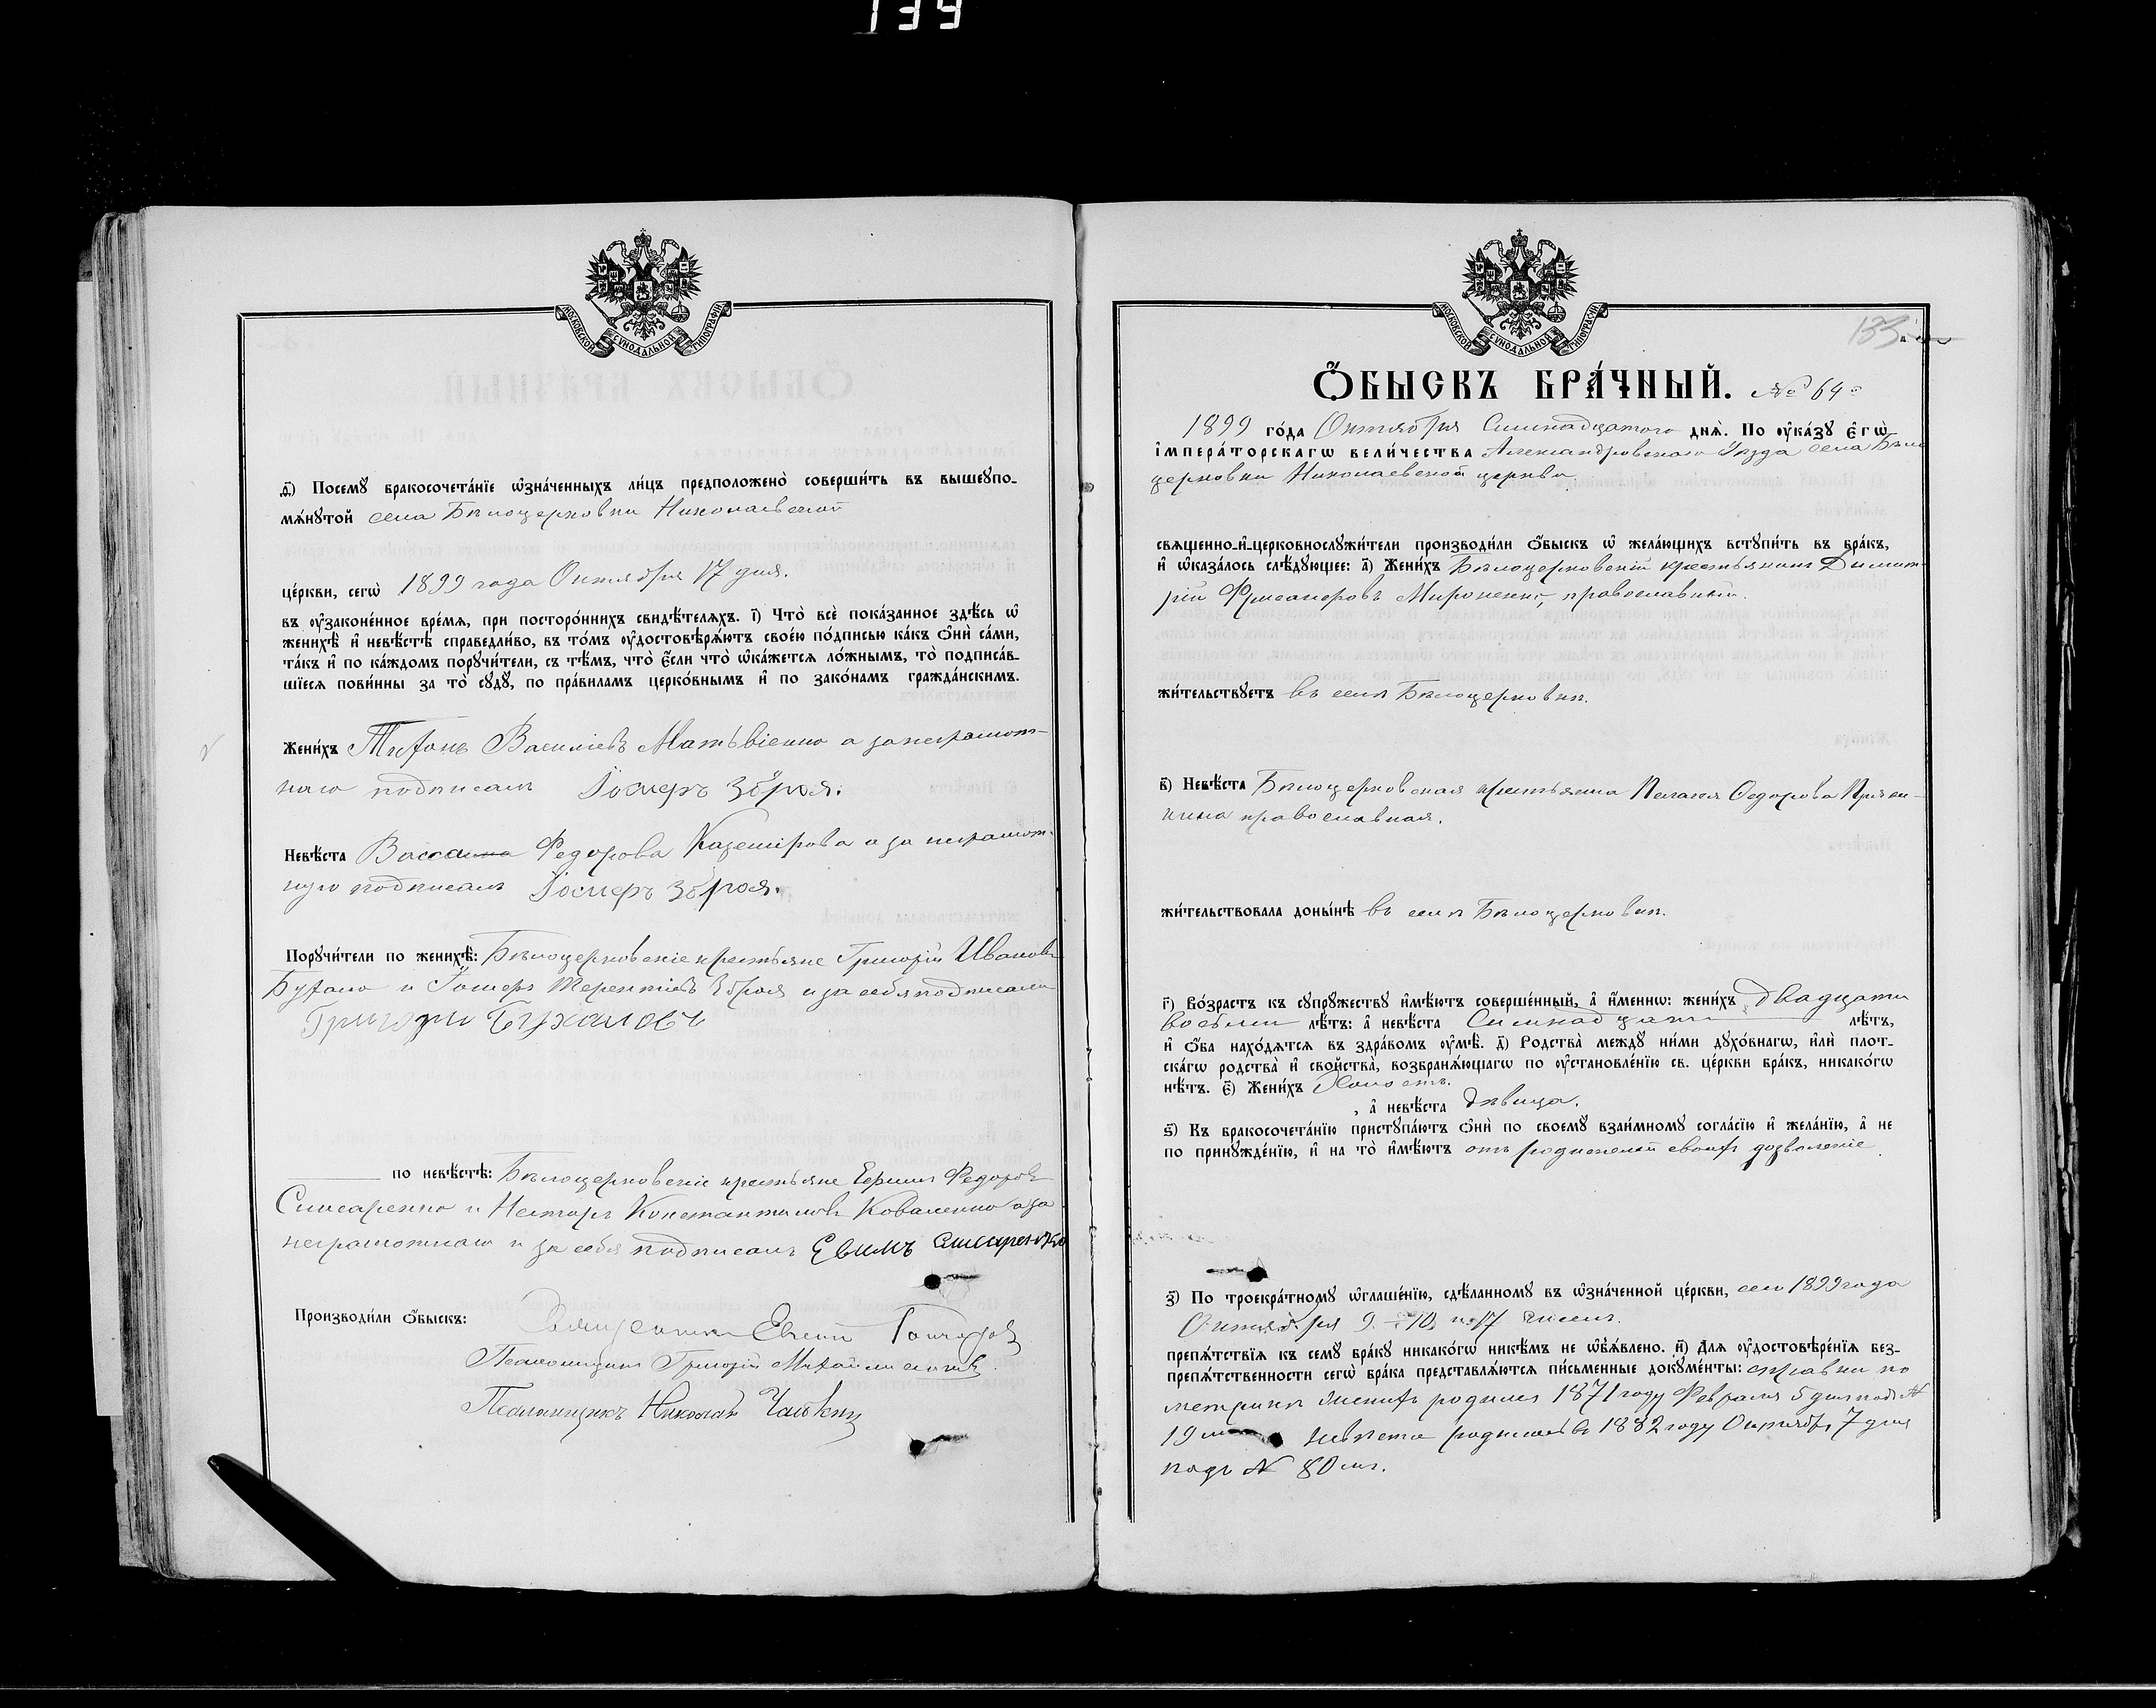 139
МОСКОВСКОЙ СУНОДАЛЬНОЙ ТИПОГРАФІИ
д҃) Посемꙋ бракосочета́нїе ѡ҆зна́ченныхъ ли́цъ предположено̀ соверши́ть въ вышеꙋпо-
мѧ́нꙋтой села Бѣлоцерковки Николаевской
це́ркви, сегѡ̀ 1899 года Октября 17 дня.
въ ᲂу҆зако́ненное вре́мѧ, при посторо́ннихъ свидѣ́телѧхъ. і҃) Что̀ всѐ пока́занное здѣ́сь ѡ҆
женихѣ̀ и҆ невѣ́стѣ справедли́во, въ то́мъ ᲂу҆достовѣрѧ́ютъ свое́ю по́дписью ка́къ ѻ҆нѝ са́ми,
та́къ и҆ по ка́ждомъ порꙋчи́тели, съ тѣ́мъ, что̀ є҆́сли что̀ ѡ҆ка́жетсѧ ло́жнымъ, то̀ подписа́в-
шїесѧ пови́нны за то̀ сꙋдꙋ̀, по пра́виламъ церко́внымъ и҆ по зако́намъ гражда́нскимъ.
Жени́хъ Тихонъ Василіевъ Матвіенко а за неграмот-
наго подписалъ Іосифъ Зброя.
Невѣ́ста Васса Федорова Казетрова а за неграмот-
ную подписалъ Іосифъ Зброя.
Порꙋчи́тели по женихѣ̀: Бѣлоцерковскіе крестьяне Григорій Ивановъ
и Іосифъ Терентіевъ Зброя и за себя подписали
Григори Бухаловъ
по невѣ́стѣ: Бѣлоцерковскіе крестьяне Ефимъ Федоровъ
Слисаренко и Несторъ Константиновъ Коваленко а за
неграмотнаго и за себя подписалъ Евимъ Слисаренко
Производи́ли ѻ҆́быскъ: Священникъ Евгеній Гончаровъ
Псаломщикъ Григорій
Псаломщикъ Николай
МОСКОВСКОЙ СУНОДАЛЬНОЙ ТИПОГРАФІИ
133
Ѻ҆́БЫСКЪ БРА́ЧНЫЙ. № 64
1899 го́да Октября Семнадцатого днѧ̀. По ᲂу҆ка́зꙋ є҆гѡ̀
і҆мпера́торскагѡ вели́чества Александровскаго Уѣзда села Бѣло
церковки Николаевской церкви
свѧщенно-и҆-церковнослꙋжи́тели производи́ли ѻ҆́быскъ ѡ҆ жела́ющихъ встꙋпи́ть въ бра́къ,
и҆ ѡ҆каза́лось слѣ́дꙋющее: а҃) Жени́хъ Бѣлоцерковскій крестьянинъ Димит-
рій Мироненко, православный.
жи́тельствꙋетъ въ селѣ Бѣлоцерковкѣ.
в҃) Невѣ́ста Бѣлоцерковская крестьянка Пелагея Федорова
православная.
жи́тельствовала доны́нѣ въ селѣ Бѣлоцерковкѣ.
г҃) Во́зрастъ къ сꙋпрꙋ́жествꙋ и҆мѣ́ютъ соверше́нный, а҆ и҆́меннѡ: жени́хъ двадцати
восьми лѣ́тъ: а҆ невѣ́ста Семнадцати лѣ́тъ,
и҆ ѻ҆́ба нахо́дѧтсѧ въ здра́вомъ ᲂу҆мѣ̀. д҃) Родства̀ междꙋ ни́ми дꙋхо́внагѡ, и҆лѝ плот-
ска́гѡ родства̀ и҆ сво́йства, возбранѧ́ющагѡ по ᲂу҆становле́нїю св. це́ркви бра́къ, никако́гѡ
нѣ́тъ. є҃) Жени́хъ Холостъ.
, а҆ невѣ́ста дѣвица.
ѕ҃) Къ бракосочета́нїю пристꙋпа́ютъ ѻ҆нѝ по своемꙋ̀ взаи́мномꙋ согла́сїю и҆ жела́нїю, а҆ не
по принꙋжде́нїю, и҆ на то̀ и҆мѣ́ютъ отъ родителей своихъ дозволеніе.
з҃) По троекра́тномꙋ ѡ҆глаше́нїю, сдѣ́ланномꙋ въ ѡ҆зна́ченной це́ркви, сего 1899 года
Октября 9. 10, и 17 чиселъ.
препѧ́тствїѧ къ семꙋ̀ бра́кꙋ никако́гѡ никѣ́мъ не ѡ҆б̾ѧ́влено. и҃) Длѧ ᲂу҆достовѣре́нїѧ без-
препѧ́тственности сегѡ̀ бра́ка представлѧ́ютсѧ пи́сьменные докꙋме́нты: справки по
метрикѣ женихъ родился 1871 году Февраля 5 дня подъ №
19 невѣста родилась 1882 году Октября 7 дня
подъ № 80мъ.